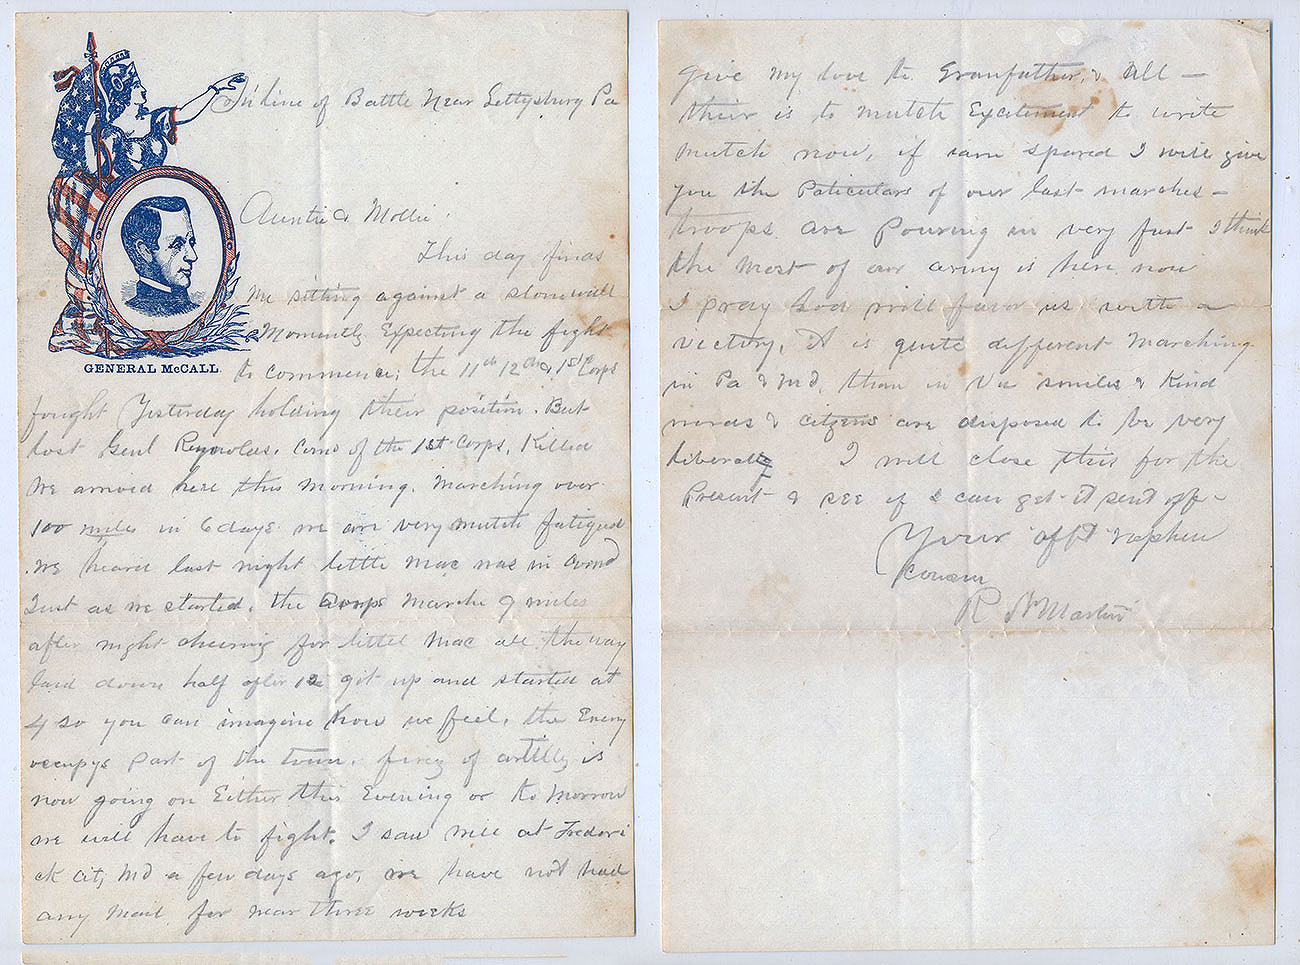 In line of Battle Near Gettysburg Pa
Auntie & Mollie.
This day finds
me sitting against a stonewall
Momently Expecting the fight
to commence; the 11th 12th & 1st Corps
GENERAL McCALL.
fought Yesterday holding their position. But
lost Genl Reynolds. Com of the 1st Corps, Killed
We arrived here this morning. Marching over
100 miles in 6 days we are very mutch fatigued
we heard last night little Mac was in comd
Just as we started. the Corps Marche 9 miles
after night cheering for little Mac all the way
laid down half after 12 git up and started at
4 so you can imagine how we feel. the Enemy
occupys part of the town. firing of artilly is
now going on Either this Evening or to Morrow
we will have to fight. I saw Will at Frederi
ck city Md a few days ago, we have not had
any Mail for near three weeks
give my love to Granfather, & All —
their is to mutch Excitement to write
mutch now, if iam spared I will give
you the Paticulars of our last marches —
troops are Pouring in very fast I think
the most of our army is here now
I pray God will favor us with a
victory, It is quite different Marching
in Pa & Md than in Va smiles & Kind
words & citizens are disposed to be very
liberally I will close this for the
Present & see if I can get it sent off –
Your afft nephew
cousin
R Martin